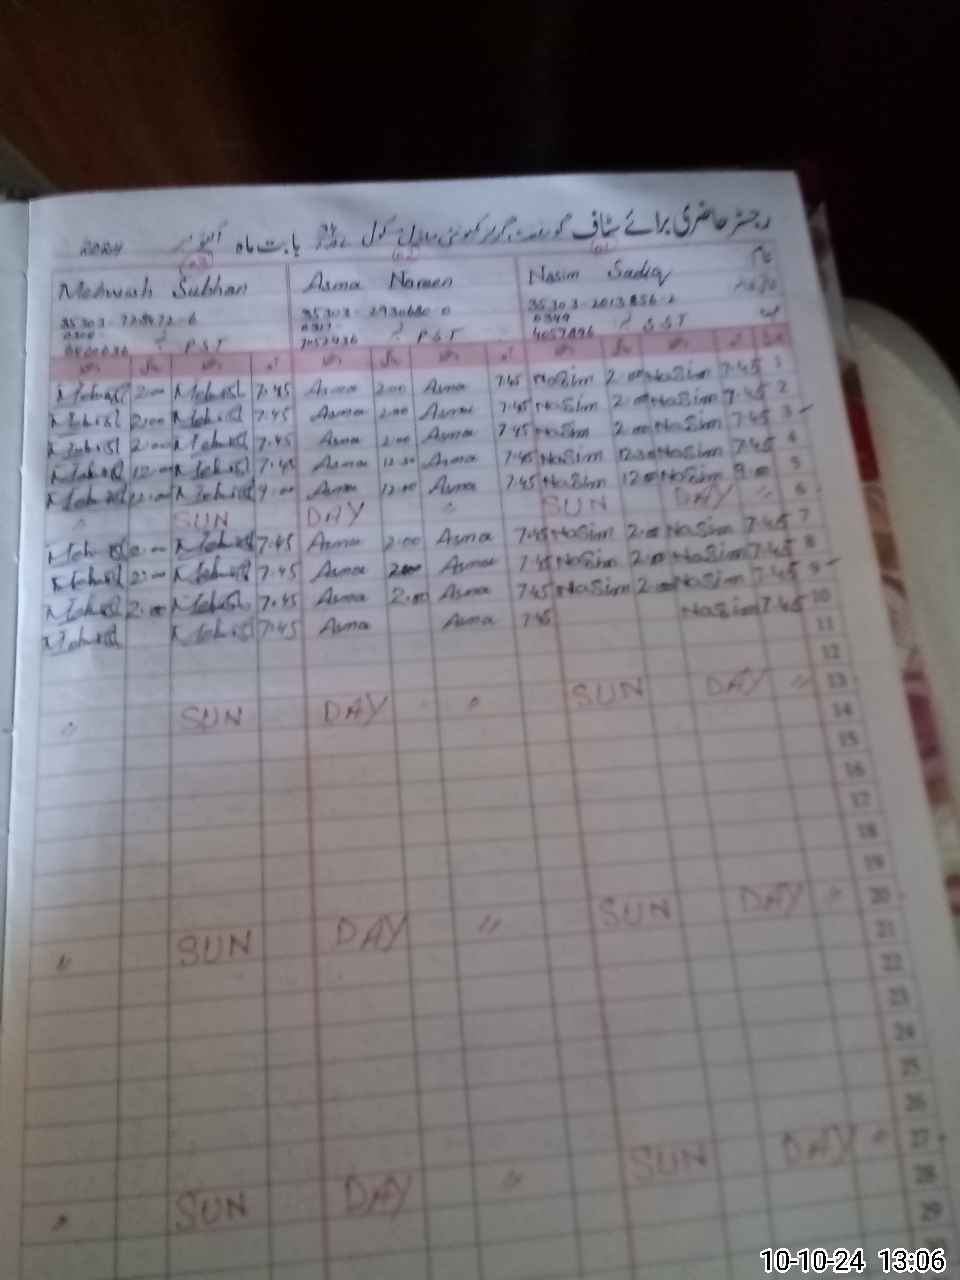 رجسٹر حاضری برائے سٹاف گورنمنٹ گرلز کمیونٹی ماڈل سکول بابت ماہ اکتوبر 2024
نام Nasim Sadiq Asma Nareen Mehwish Subhan
35303-2013856-2 35303-2930680-0
0349 0317- 0300-
4057896 SST 7052436 PST PST
Mehwish 2.00 Mehwish 7.45 Asma 2.00 Asma 7.45 NaSim 2.00 NaSim 7.45 1
Mehwish 2.00 Mehwish 7.45 Asma 2.00 Asma 7.45 NaSim 2.00 NaSim 7.45 2
Mehwish 2.00 Mehwish 7.45 Asma 2.00 Asma 7.45 NaSim 2.00 NaSim 7.45 3
Mehwish 12.00 Mehwish 7.45 Asma 12.30 Asma 7.45 NaSim 12.30 NaSim 7.45 4
Mehwish 12.00 Mehwish 9.00 Asma 12.00 Asma 7.45 NaSim 12.00 NaSim 9.00 5
" SUN DAY " SUN DAY " 6
Mehwish 2.00 Mehwish 7.45 Asma 2.00 Asma 7.45 NaSim 2.00 NaSim 7.45 7
Mehwish 2.00 Mehwish 7.45 Asma 2.00 Asma 7.45 NaSim 2.00 NaSim 7.45 8
Mehwish 2.00 Mehwish 7.45 Asma 2.00 Asma 7.45 NaSim 2.00 NaSim 7.45 9
Mehwish Mehwish 7.45 Asma Asma 7.45 NaSim 7.45 10
11
12
" SUN DAY " SUN DAY " 13
14
15
16
17
18
19
" SUN DAY " SUN DAY " 20
21
22
23
24
25
26
" SUN DAY " SUN DAY " 27
28
29
30
10-10-24 13:06